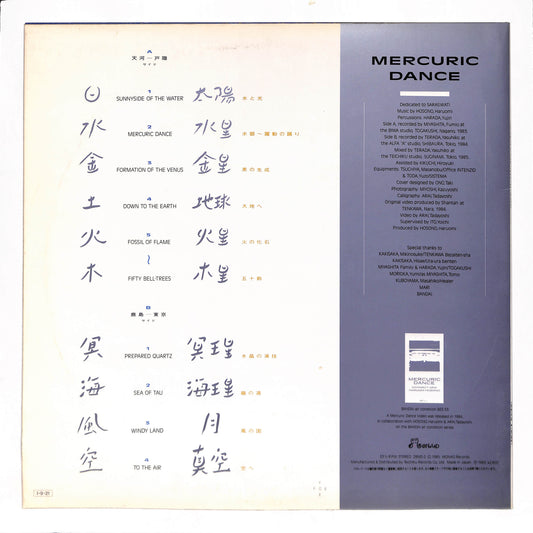 A
天河—戸隠
サイド
日
1
SUNNYSIDE OF THE WATER
太陽
水と光
水
2
MERCURIC DANCE
水星
金
3
FORMATION OF THE VENUS
金星
星の生成
土
4
DOWN TO THE EARTH
地球
大地へ
火
5
FOSSIL OF FLAME
火星
火の化石
木
6
FIFTY BELL-TREES
木星
五十鈴
B
鹿島—東京
サイド
冥
1
PREPARED QUARTZ
冥王星
海
2
SEA OF TAU
海王星
風
3
WINDY LAND
月
風の国
空
4
TO THE AIR
真空
空へ
1-9-21
MERCURIC
DANCE
Dedicated to SARASWATI
Music by HOSONO, Haruomi
Percussions: HARADA, Yujin
Side A, recorded by MIYASHITA, Fumio at
the BIWA studio, TOGAKUSHI, Nagano, 1985.
Side B, recorded by TERADA, Yasuhiko at
the ALFA "A" studio, SHIBAURA, Tokyo, 1984.
Mixed by TERADA, Yasuhiko at
the TEICHIKU studio, SUGINAMI, Tokyo, 1985.
Assisted by KIKUCHI, Hiroyuki
Equipments: TSUCHIYA, Masanobu/Office INTENZIO
& TODA, Yuji/SISTEMA
Cover designed by ONO, Taki
Photography: MIYOSHI, Kazuyoshi
Caligraphy: ARAI, Tadayoshi
Original video produced by Shantah at
TENKAWA, Nara, 1984.
Video by ARAI, Tadayoshi
Supervised by ITO, Yoichi
Produced by HOSONO, Haruomi
Special thanks to
MORIOKA, Yumi/ISE, Tomio
KUBOYAMA, Masahiko/Healer
MARI
BANDAI
MERCURIC
DANCE
A Mercuric Dance Video was released in 1984,
in collaboration with HOSONO, Haruomi & ARAI, Tadayoshi